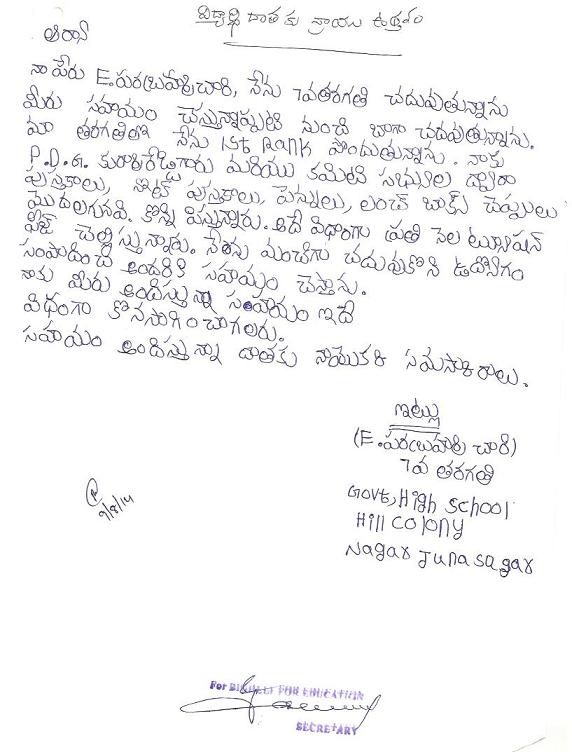 విద్యార్థి దాతకు వ్రాయు ఉత్తరం
నా పేరు E.పరబ్రహ్మచారి, నేను 7వతరగతి చదువుతున్నాను
మీరు సహయం చేస్తున్నప్పటి నుంచి బాగా చదువుతున్నాను.
మా తరగతిలో నేను 1st Rank పొందుతున్నాను. నాకు
P.D.G. గారు మరియు కమిటి సభ్యుల ద్వారా
పుస్తకాలు, నోట్ పుస్తకాలు, పెన్నులు, లంచ్ బాక్స్ చెప్పులు
మొదలగునవి. కొన్ని పిస్తున్నారు. అదే విధంగా ప్రతి నెల ట్యూషన్
ఫీజ్ చెల్లిస్తున్నారు. నేను మంచిగా చదువుకొని ఉద్యోగం
సంపాదించి అందరికి సహయం చేస్తాను.
నాకు మీరు అందిస్తున్న సంహాయం ఇదే
విధంగా కొనసాగించాగలరు.
సహయం అందిస్తున్న దాతకు నాయొక్క సమస్కారాలు.
ఇట్లు
(E.పరబ్రహ్మ చారి)
7వ తరగతి
Govt, High School
Hill Colony
Nagar Juna sagar
For FOR EDUCATION
SECRETARY